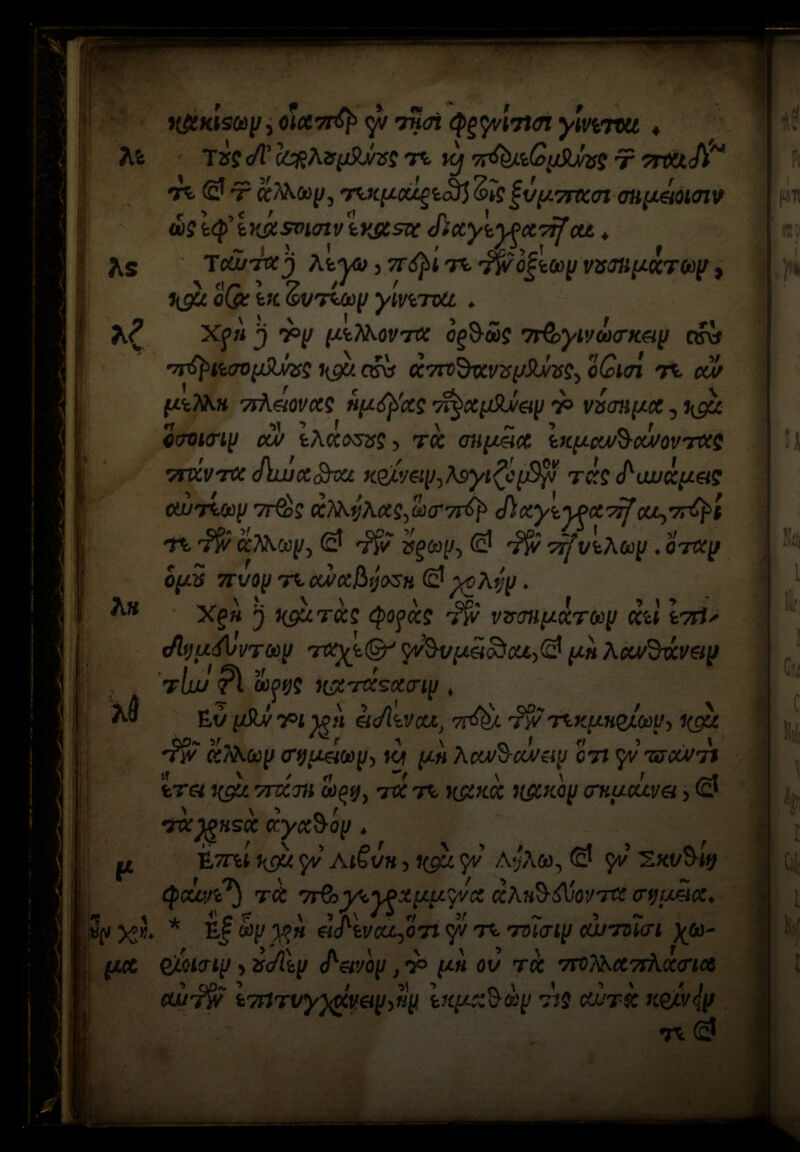 κακίστων, οἷαπερ ἐν τῇσι φρενίτισι γίνεται.
λε Τοὺς δ' ἀλγουμένους τε καὶ πυρεταινομένους τῶν παιδίων
τε καὶ τῶν ἄλλων, τεκμαίρεσθαι τοῖς ξύμπασι σημείοισιν
ὡς ἐφ' ἑκάστοισιν ἕκαστα διαγέγραπται.
λς Ταῦτα δὲ λέγω, περί τε τῶν ὀξέων νοσημάτων,
καὶ ὅσα ἐκ τουτέων γίνεται.
λζ Χρὴ δὲ τὸν μέλλοντα ὀρθῶς προγινώσκειν τοὺς
περιεσομένους καὶ τοὺς ἀποθανουμένους, ὅσοισί τε ἂν
μέλλῃ πλείονας ἡμέρας παραμένειν τὸ νόσημα, καὶ
ὅσοισιν ἂν ἐλάσσους, τὰ σημεῖα ἐκμανθάνοντας
πάντα δύνασθαι κρίνειν, λογιζόμενον τὰς δυνάμεις
αὐτέων πρὸς ἀλλήλας, ὥσπερ διαγέγραπται, περί
τε τῶν ἄλλων, καὶ τῶν οὔρων, καὶ τῶν πτυέλων. ὅταν
ὁμοῦ πύον τε ἀναβήσσῃ καὶ χολήν.
λη Χρὴ δὲ καὶ τὰς φορὰς τῶν νοσημάτων ἀεὶ ἐπι-
δημεύντων ταχέως ἐνθυμεῖσθαι, καὶ μὴ λανθάνειν
τὴν τῆς ὥρης κατάστασιν.
λθ Εὖ μέν τοι χρὴ εἰδέναι, περὶ τῶν τεκμηρίων, καὶ
τῶν ἄλλων σημείων, καὶ μὴ λανθάνειν ὅτι ἐν παντὶ
ἔτει καὶ πάσῃ ὥρῃ, τά τε κακὰ κακὸν σημαίνει, καὶ
τὰ χρηστὰ ἀγαθόν.
μ Ἐπεὶ καὶ ἐν Λιβύῃ, καὶ ἐν Δήλῳ, καὶ ἐν Σκυθίῃ
φαίνεται τὰ προγεγραμμένα ἀληθεύοντα σημεῖα.
ἦν χρή. * Ἐξ ὧν χρὴ εἰδέναι, ὅτι ἐν τε τοῖσιν αὐτοῖσι χω-
μα ρίοισιν, οὐδὲν δεινὸν, τὸ μὴ οὐ τὰ πολλαπλάσια
αὐτῶν ἐπιτυγχάνειν, ἢν ἐκμαθών τις αὐτὰ κρίνειν
τε καὶ